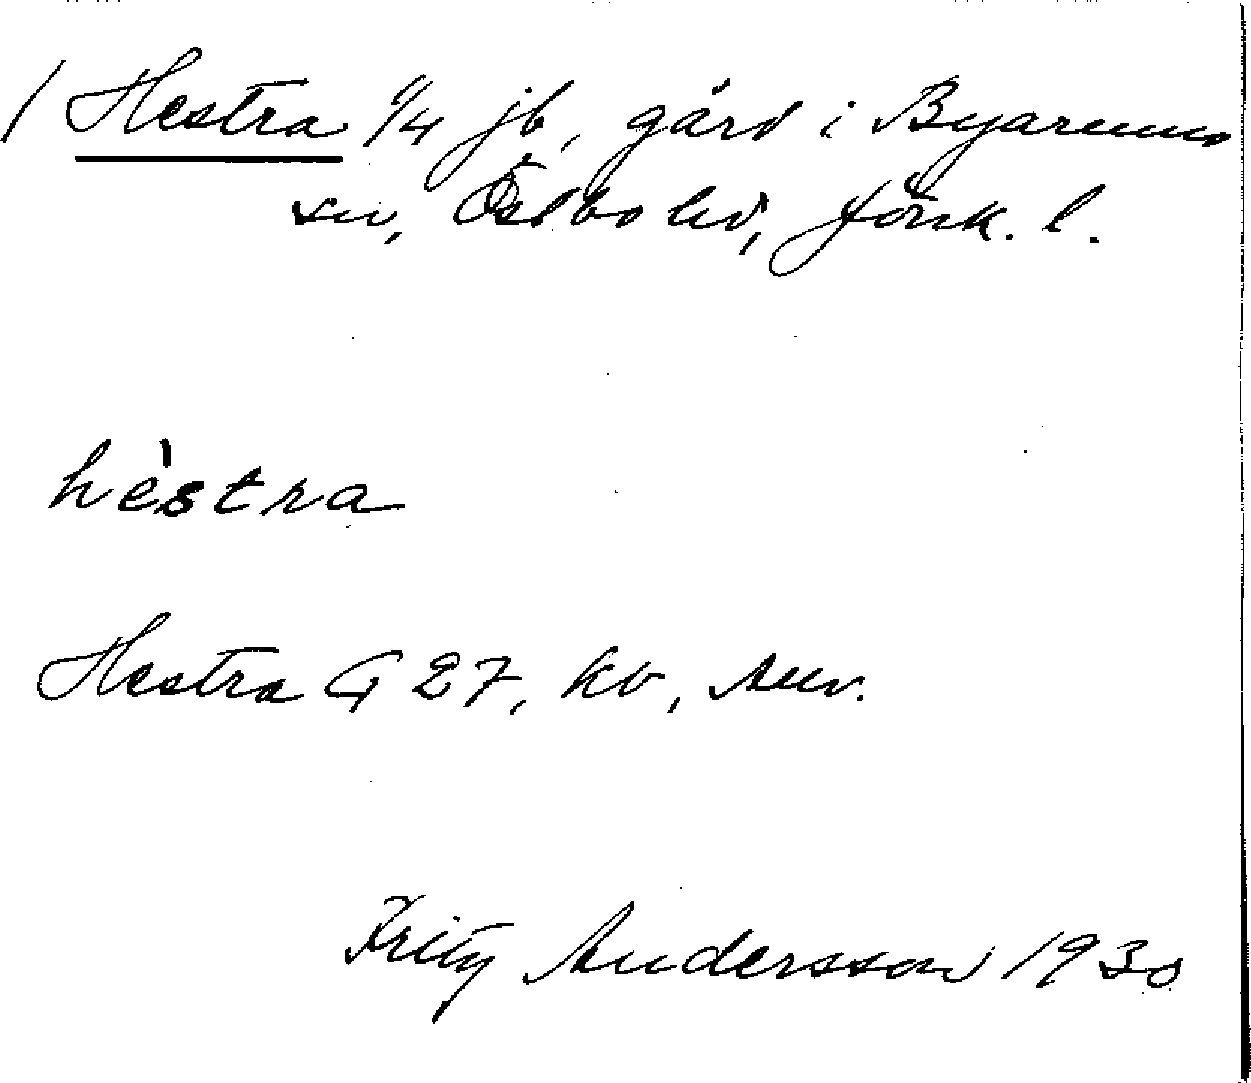 / Hestra 1/4 jb, gård i Byarums
sn, Östbo hd, Jönk. l.
hèstra
Hestra G 27, kb,
Fritz Andersson 1930